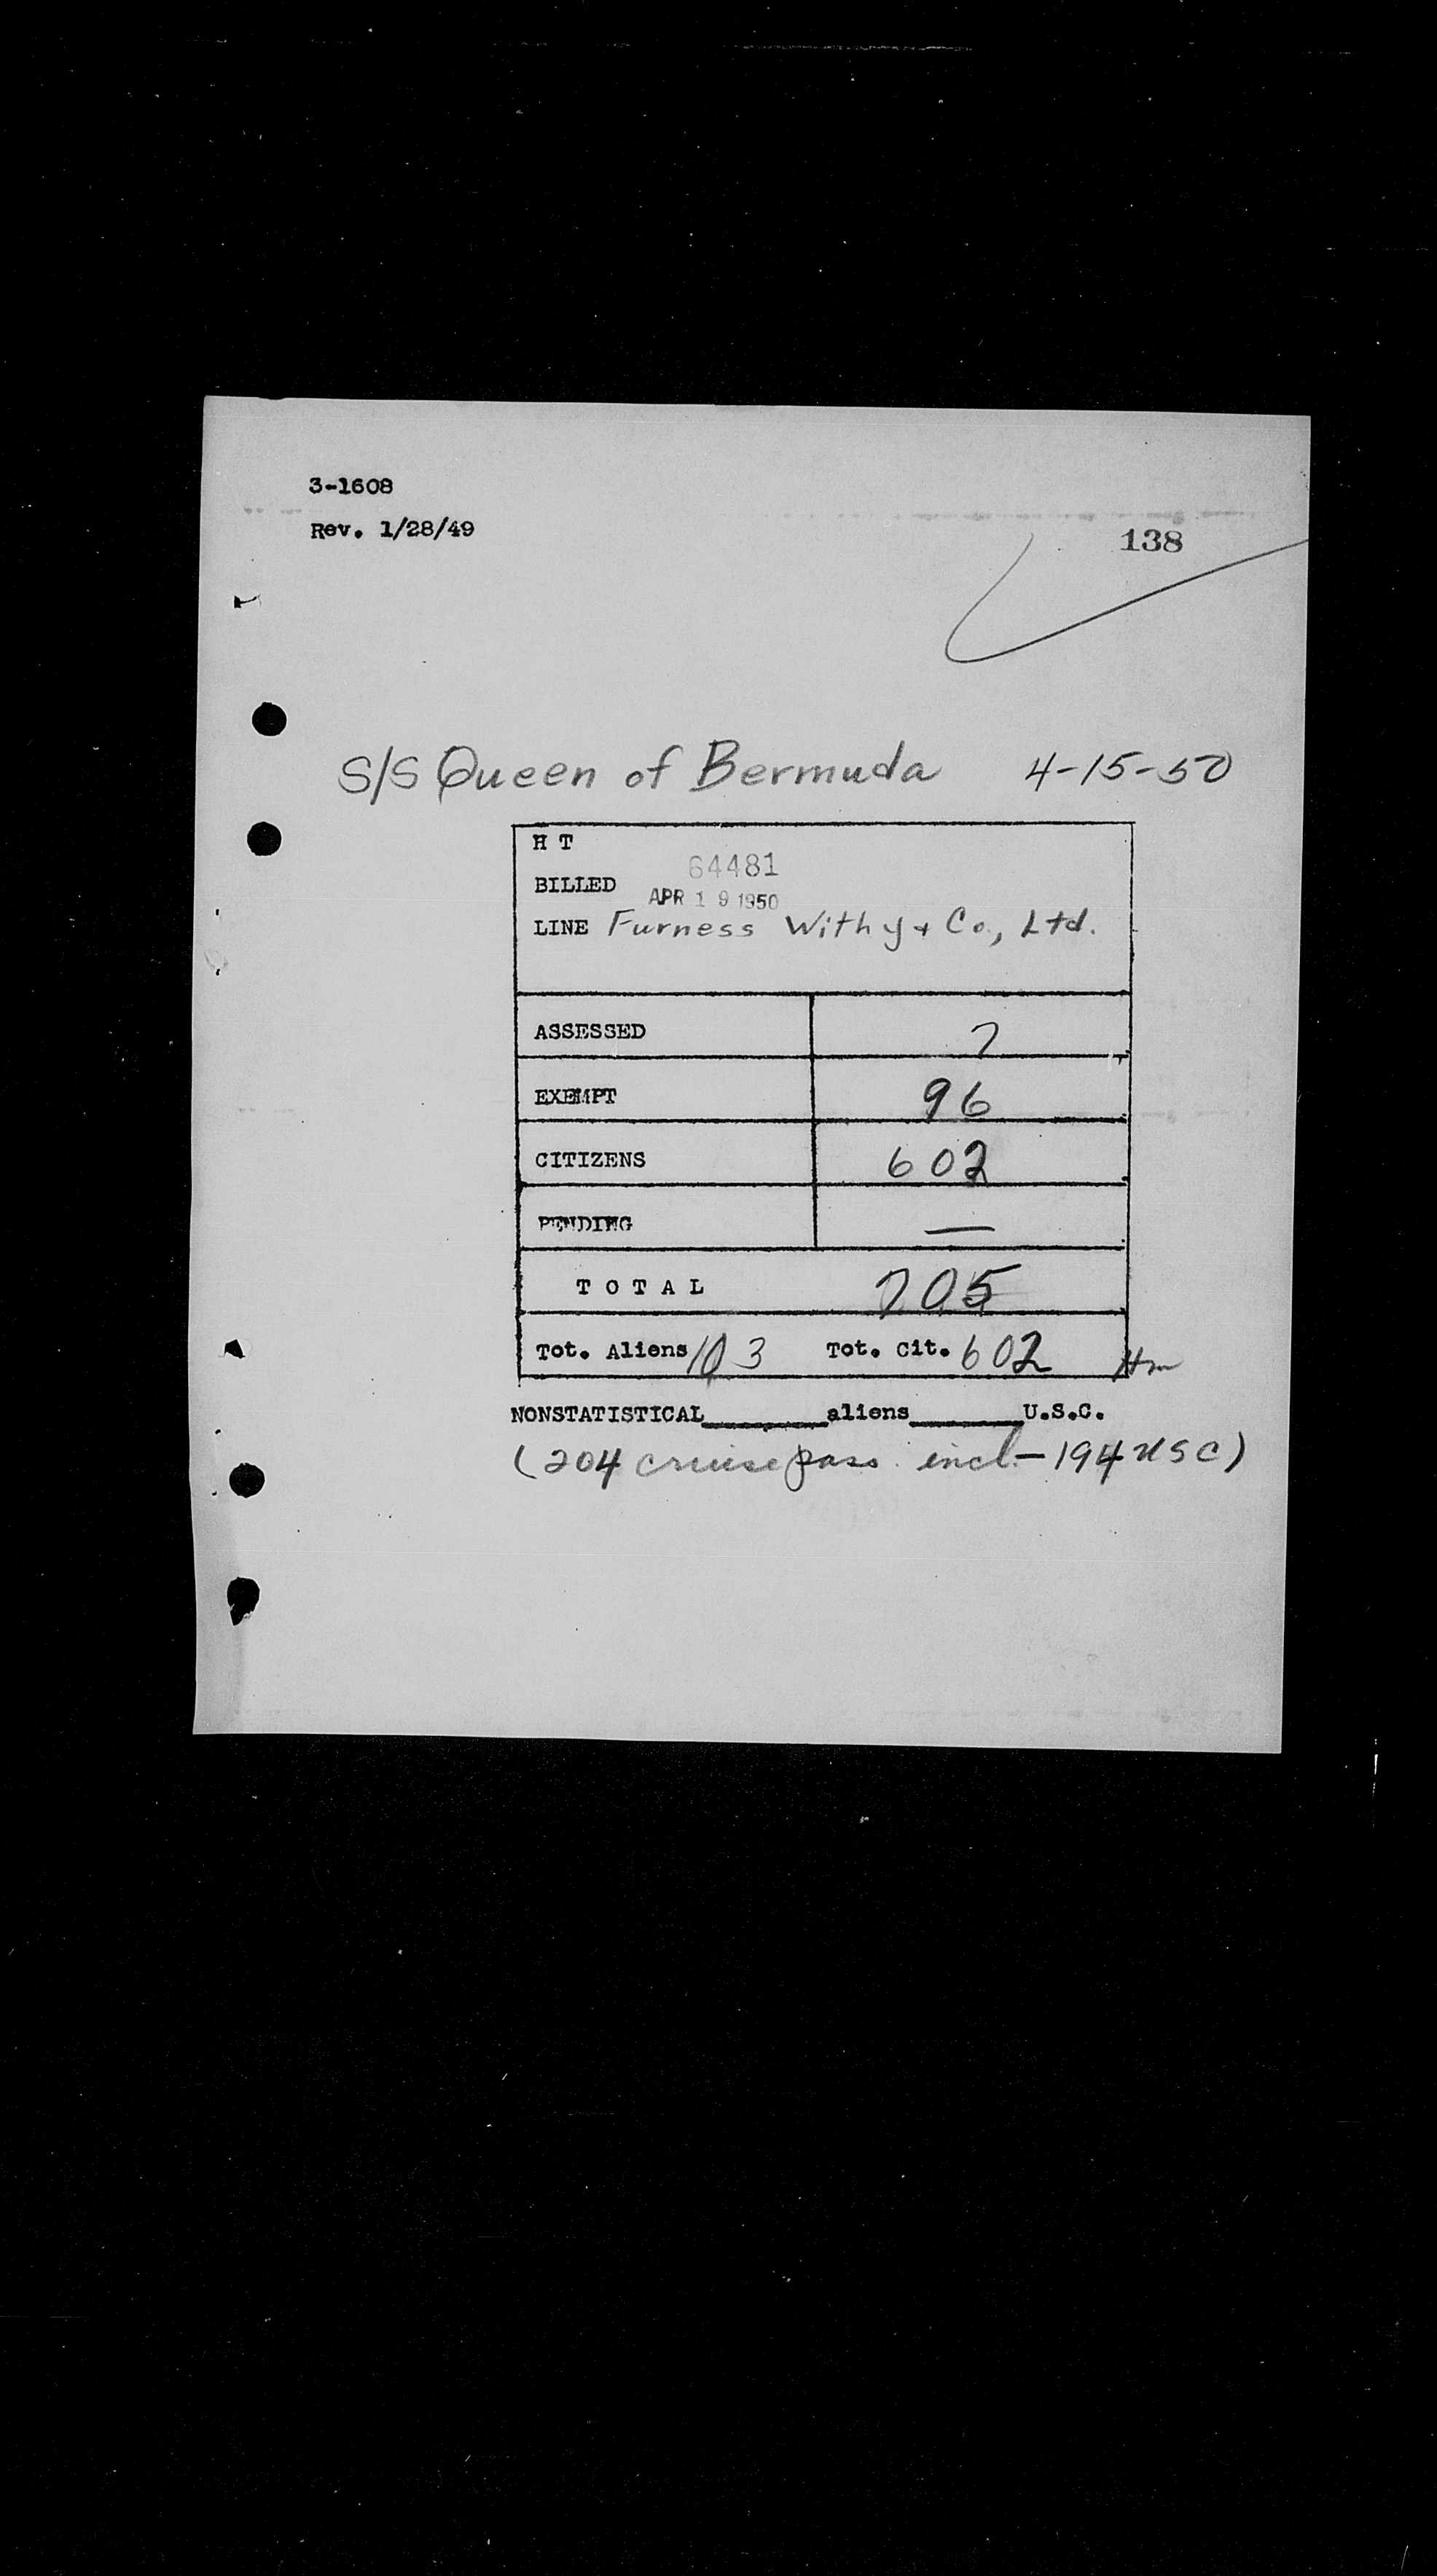 3-1608
Rev. 1/28/49
138
S/S Queen of Bermuda 4-15-50
H T
64481
BILLED
APR 19 1950
LINE Furness Withy & Co., Ltd.
ASSESSED 7
EXEMPT 96
CITIZENS 602
PENDING —
T O T A L 705
Tot. Aliens 103 Tot. Cit. 602 Hm
NONSTATISTICAL______aliens______U.S.C.
(204 cruise pass. incl.- 194 USC)